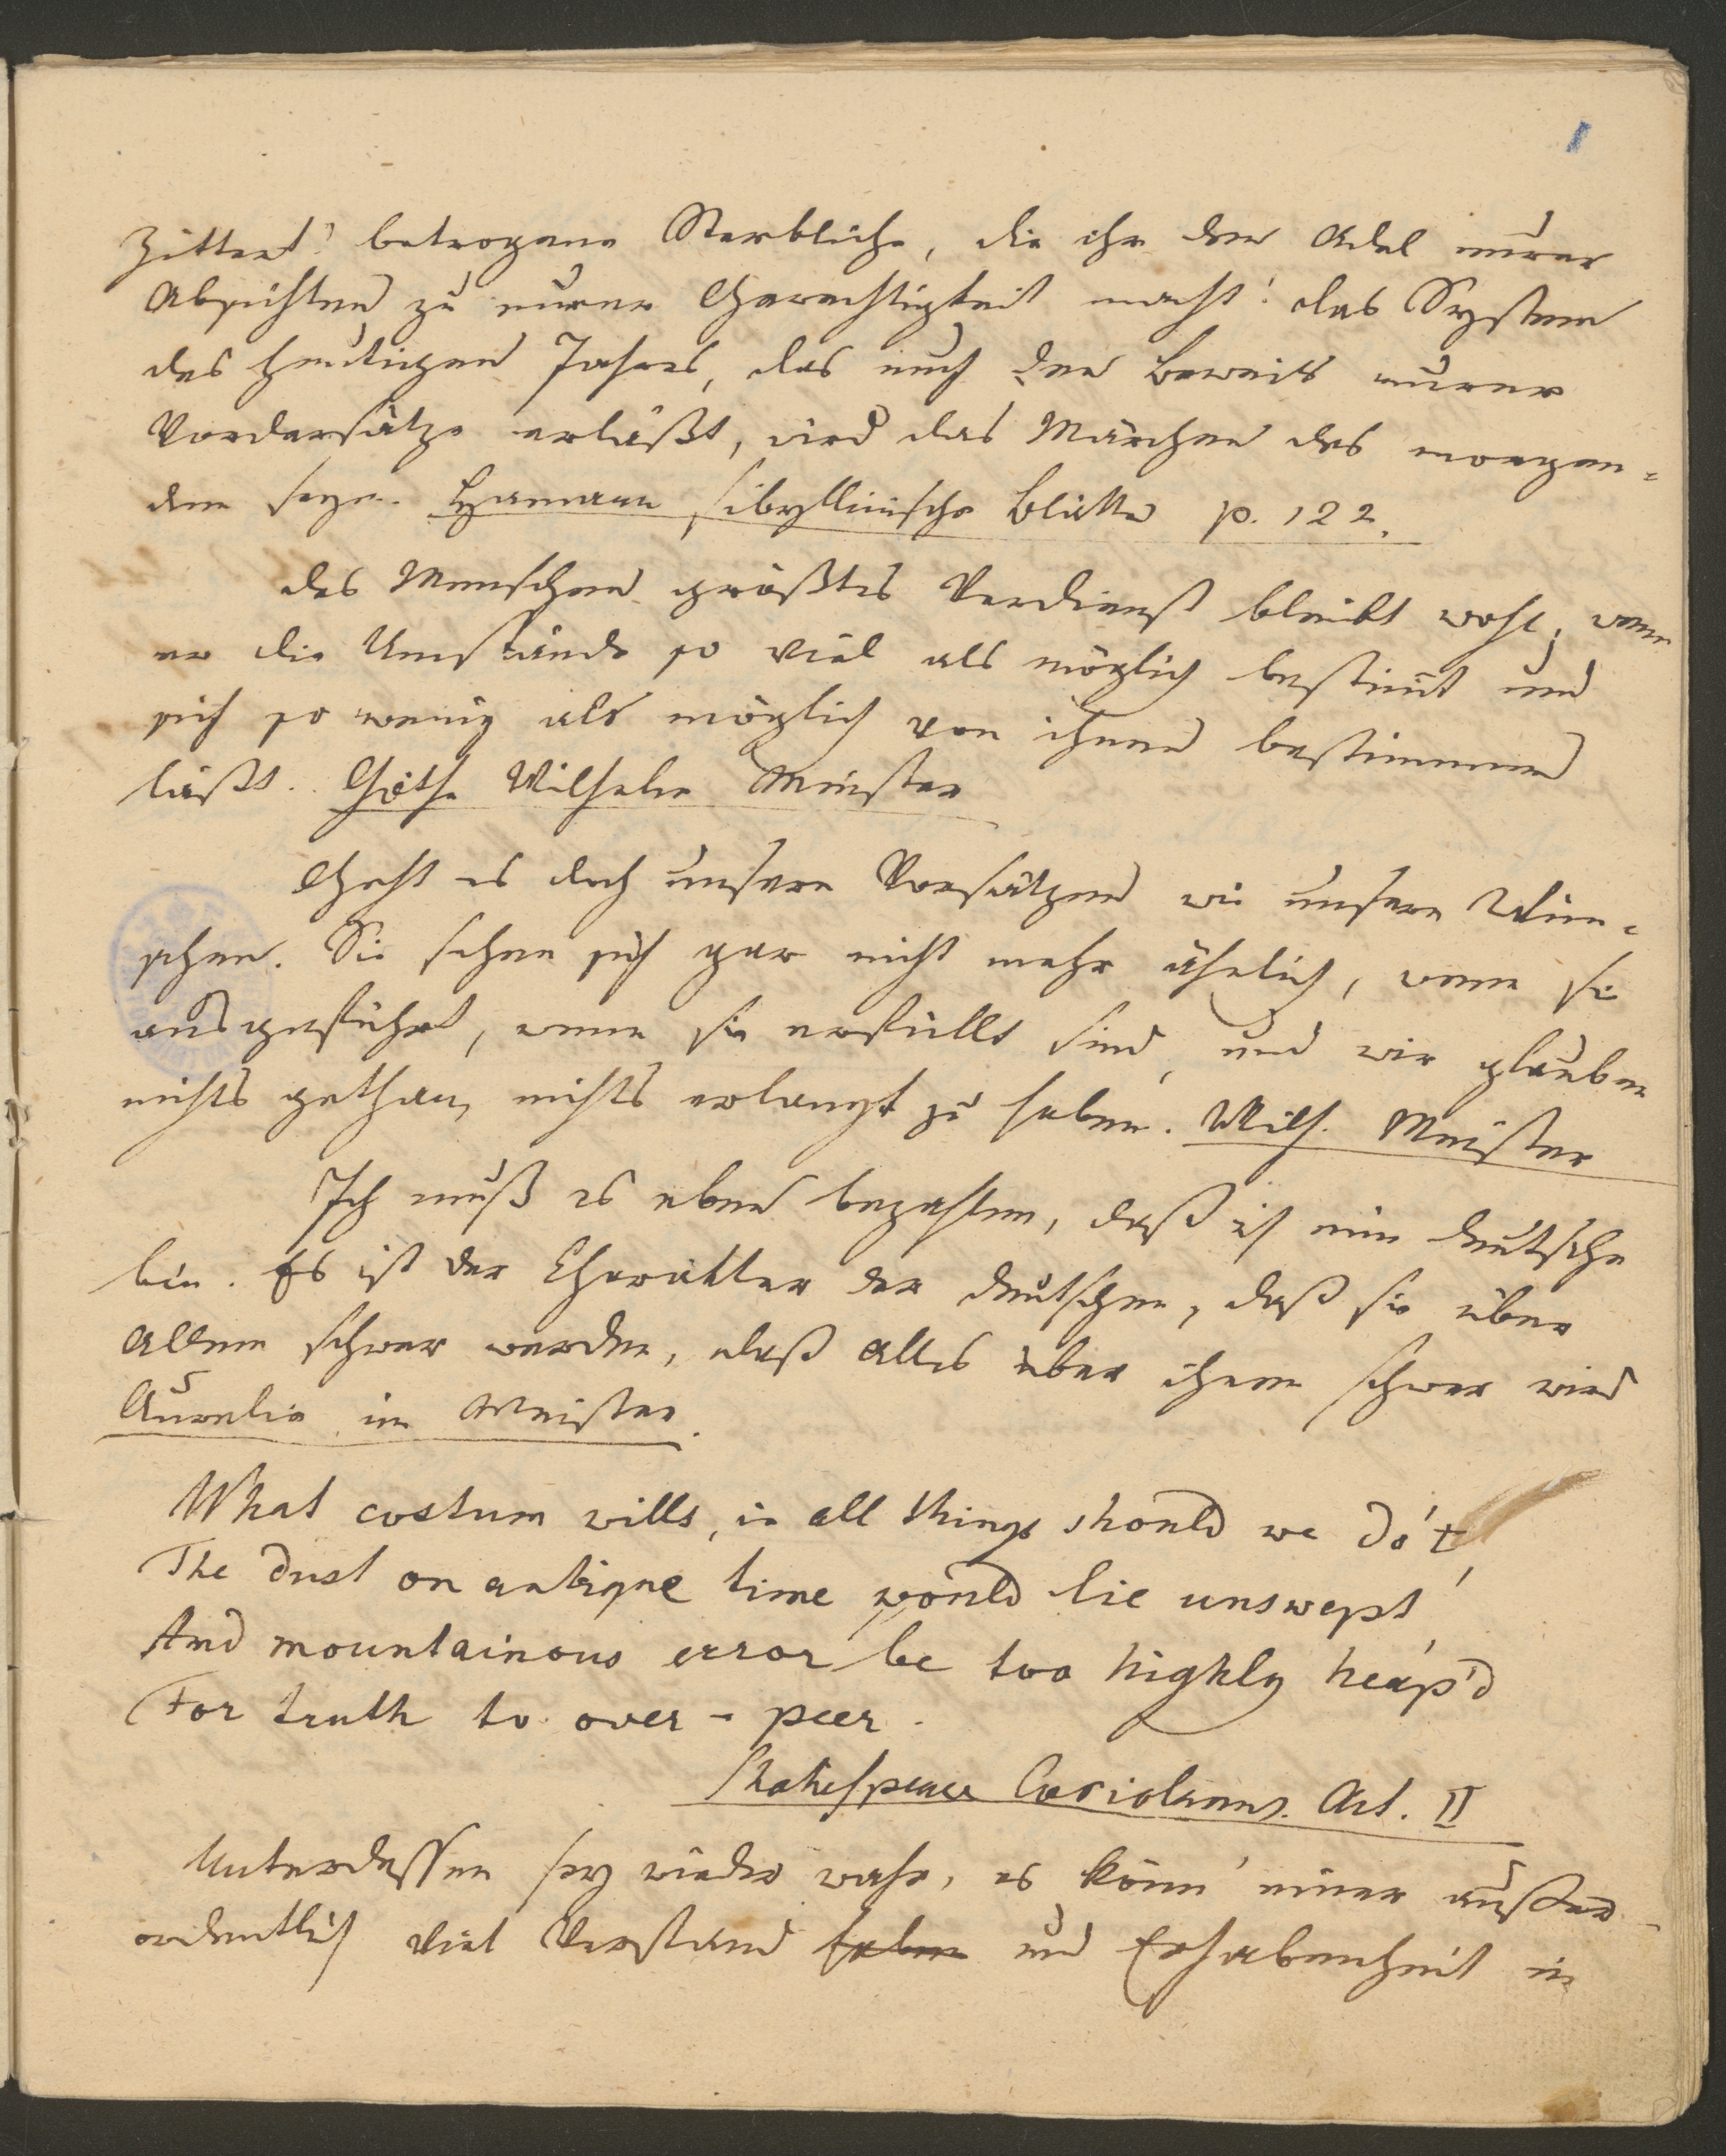 1
Zittert! betrogene Sterbliche, die ihr den Adel eurer
Absichten zu eurer Gerechtigkeit macht! das System
des heutigen Jahres, das euch den Beweis eurer
Vordersätze erläßt, wird das Mährchen des morgen=
den seyn. Hamann, sibyllinische Blätter p. 122.
des Menschen größtes Verdienst bleibt wohl, wenn
er die Umstände so viel als möglich bestimt und
sich so wenig als möglich von ihnen bestimmen
läßt. Göthe Wilhelm Meister
Geht es doch unsern Vorsätzen wie unsern Wün=
schen. Sie sehen sich gar nicht mehr ähnlich, wenn sie
ausgeführt, wenn sie erfüllt sind, und wir glauben
nichts gethan, nichts erlangt zu haben. Wilh. Meister
Ich muß es eben bezahlen, daß ich eine deutsche
bin. Es ist der Charakter der deutschen, daß sie über
Allem schwer werden, daß Alles über ihnen schwer wird
Aurelie im Meister.
What costum wills, in all things should we do't,
The dust on antique time would lie unswept,
And mountainous error be too highly heap'd
For truth to over-peer.
Shakespeare Coriolanus. Act. II
Unterdessen sey wieder wahr, es könn' einer außer-
ordentlich viel Verstand haben und Erhabenheit in